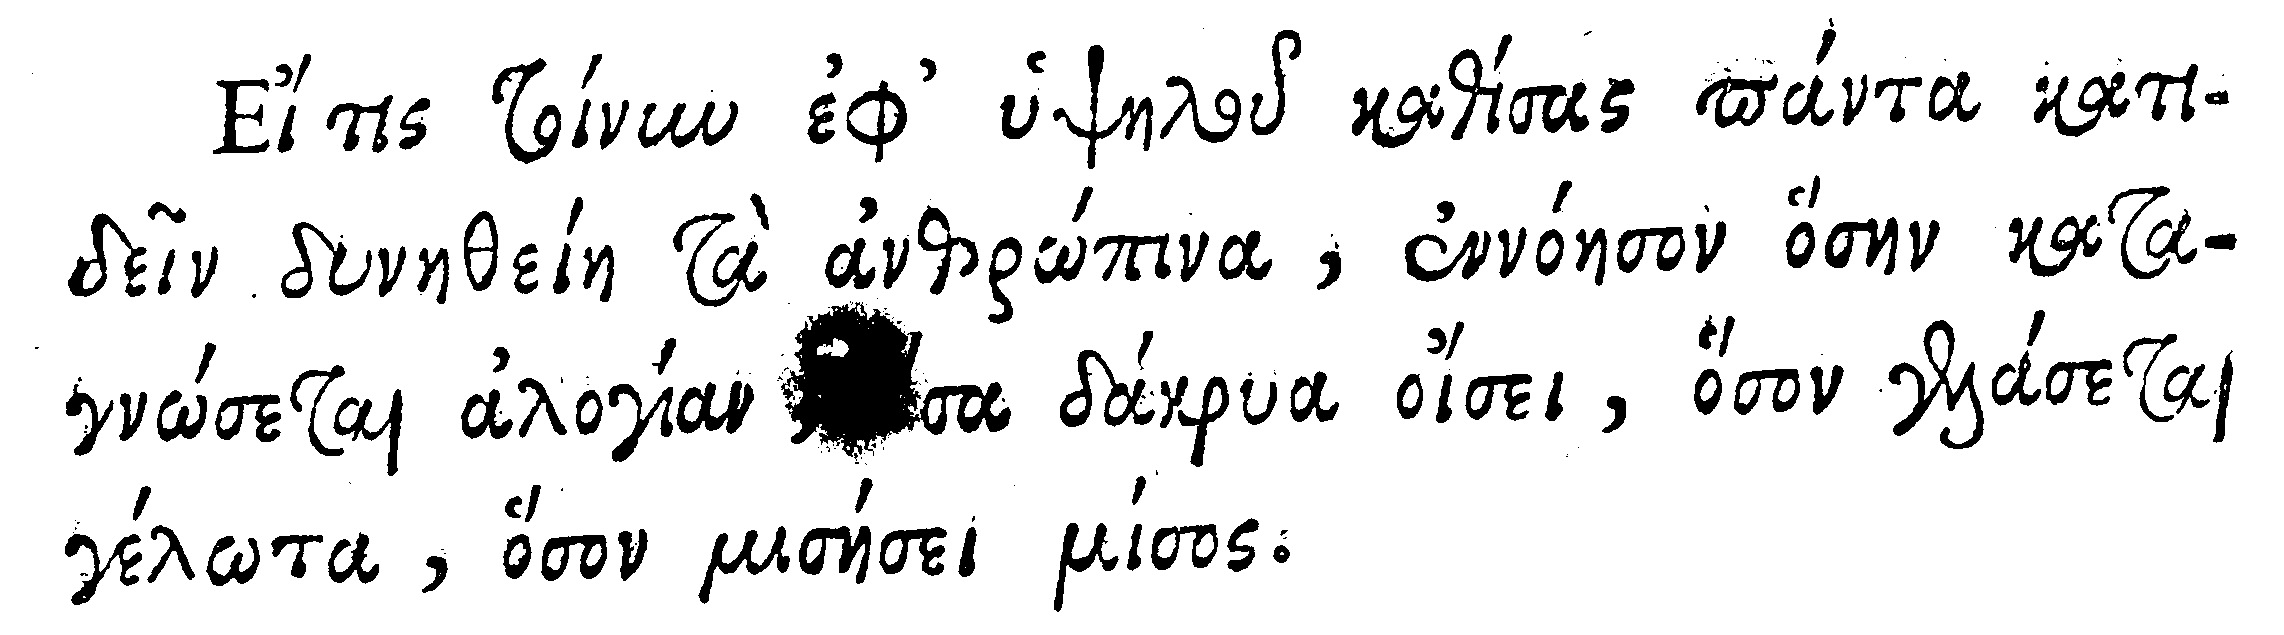 Εἴ τις τοίνυν ἐφ’ ὑψηλοῦ καθίσας πάντα κατι-
δεῖν δυνηθείη τὰ ἀνθρώπινα, ἐννόησον ὅσην κατα-
γνώσεται ἀλογίαν, δάκρυα οἴσει, ὅσον γελάσεται
γέλωτα, ὅσον μισήσει μίσος.